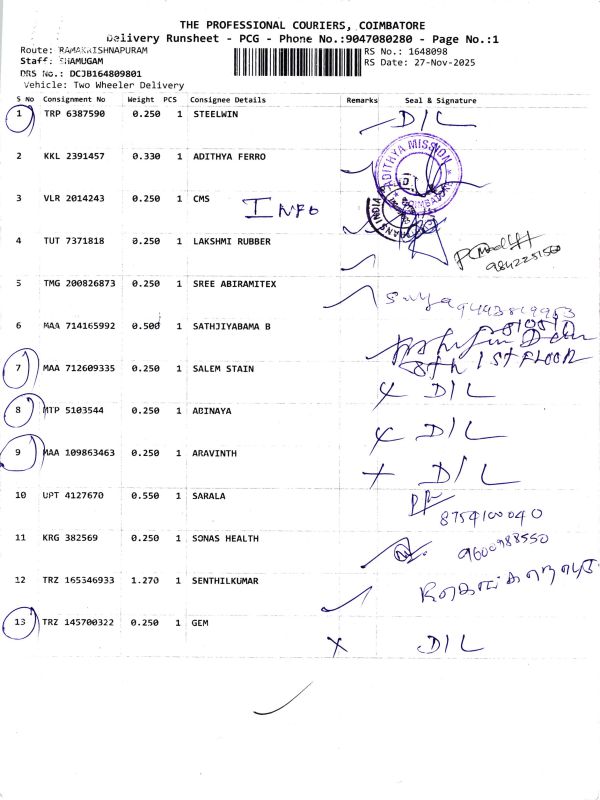 THE PROFESSIONAL COURIERS, COIMBATORE
Delivery Runsheet - PCG - Phone No.:9047080280 - Page No.:1
Route: RAMAKRISHNAPURAM
RS No.: 1648098
Staff: SHAMUGAM
RS Date: 27-Nov-2025
DRS No.: DCJB164809801
Vehicle: Two Wheeler Delivery
S No Consignment No Weight PCS Consignee Details Remarks Seal & Signature
1 TRP 6387590 0.250 1 STEELWIN D/L
2 KKL 2391457 0.330 1 ADITHYA FERRO
ADITHYA MISSION
3 VLR 2014243 0.250 1 CMS INFO
4 TUT 7371818 0.250 1 LAKSHMI RUBBER
9842251560
5 TMG 200826873 0.250 1 SREE ABIRAMITEX
Surya 9443819953
6 MAA 714165992 0.500 1 SATHJIYABAMA B
8th 1ST FLOOR
7 MAA 712609335 0.250 1 SALEM STAIN x D/L
8 MTP 5103544 0.250 1 ABINAYA x D/L
9 MAA 109863463 0.250 1 ARAVINTH x D/L
10 UPT 4127670 0.550 1 SARALA
8754100040
11 KRG 382569 0.250 1 SONAS HEALTH
9600988550
12 TRZ 165346933 1.270 1 SENTHILKUMAR
13 TRZ 145700322 0.250 1 GEM x D/L